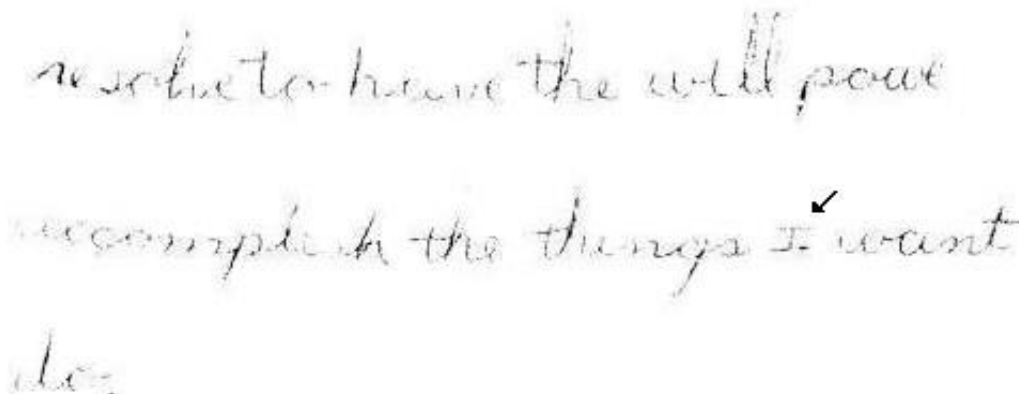 resolve to have the will powe
accomplish the things I want
do